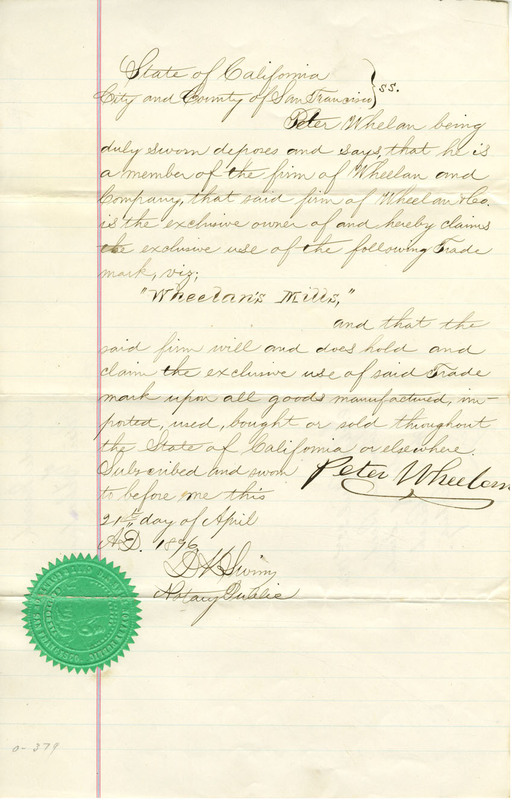 State of California
City and County of San Francisco } ss.
Peter Whelan being
duly sworn deposes and says, that he is
a member of the firm of Wheelan and
Company, that said firm of Wheelan & Co.
is the exclusive owner of and hereby claims
the exclusive use of the following Trade
mark, viz;
"Wheelan's Mills,"
and that the
said firm will and does hold and
claim the exclusive use of said Trade
mark upon all goods manufactured, im-
ported, used, bought or sold throughout
the State of California or elsewhere.
Subscribed and sworn Peter Wheelan
to before me this
21st day of April
A.D. 1896
Notary Public
0-379